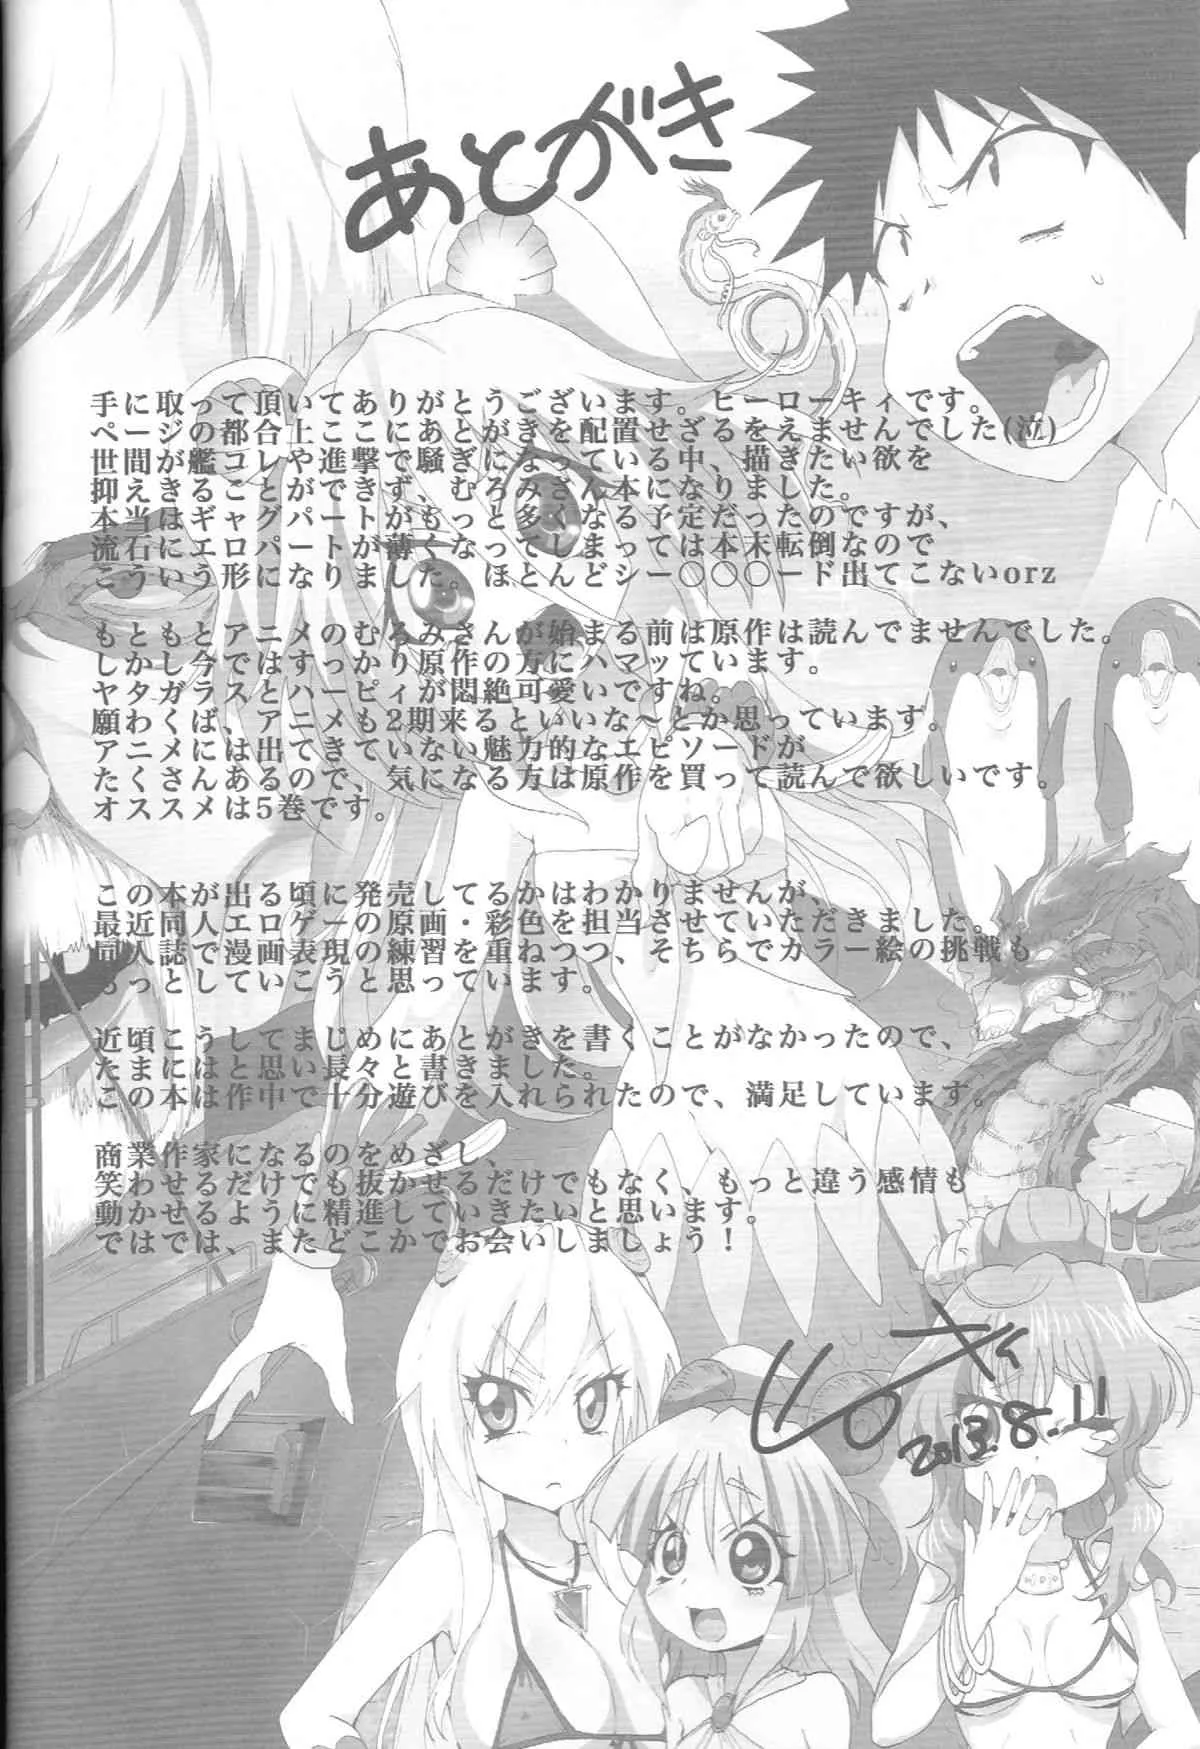 あとがき
手に取って頂いてありがとうございます。ヒーローキィです。
ページの都合上ここにあとがきを配置せざるをえませんでした(泣)
世間が艦コレや進撃で騒ぎになっている中、描きたい欲を
抑えきることができず、むろみさん本になりました。
本当はギャグパートがもっと多くなる予定だったのですが、
流石にエロパートが薄くなってしまっては本末転倒なので
こういう形になりました。ほとんどシー〇〇〇ード出てこないorz
もともとアニメのむろみさんが始まる前は原作は読んでませんでした。
しかし今ではすっかり原作の方にハマッています。
ヤタガラスとハーピィが悶絶可愛いですね。
願わくば、アニメも2期来るといいな～とか思っています。
アニメには出てきていない魅力的なエピソードが
たくさんあるので、気になる方は原作を買って読んで欲しいです。
オススメは5巻です。
この本が出る頃に発売してるかはわかりませんが、
最近同人エロゲーの原画・彩色を担当させていただきました。
同人誌で漫画表現の練習を重ねつつ、そちらでカラー絵の挑戦も
もっとしていこうと思っています。
近頃こうしてまじめにあとがきを書くことがなかったので、
たまにはと思い長々と書きました。
この本は作中で十分遊びを入れられたので、満足しています。
商業作家になるのをめざし、
笑わせるだけでも抜かせるだけでもなく、もっと違う感情も
動かせるように精進していきたいと思います。
ではでは、またどこかでお会いしましょう！
ヒーローキィ
2013.8.11